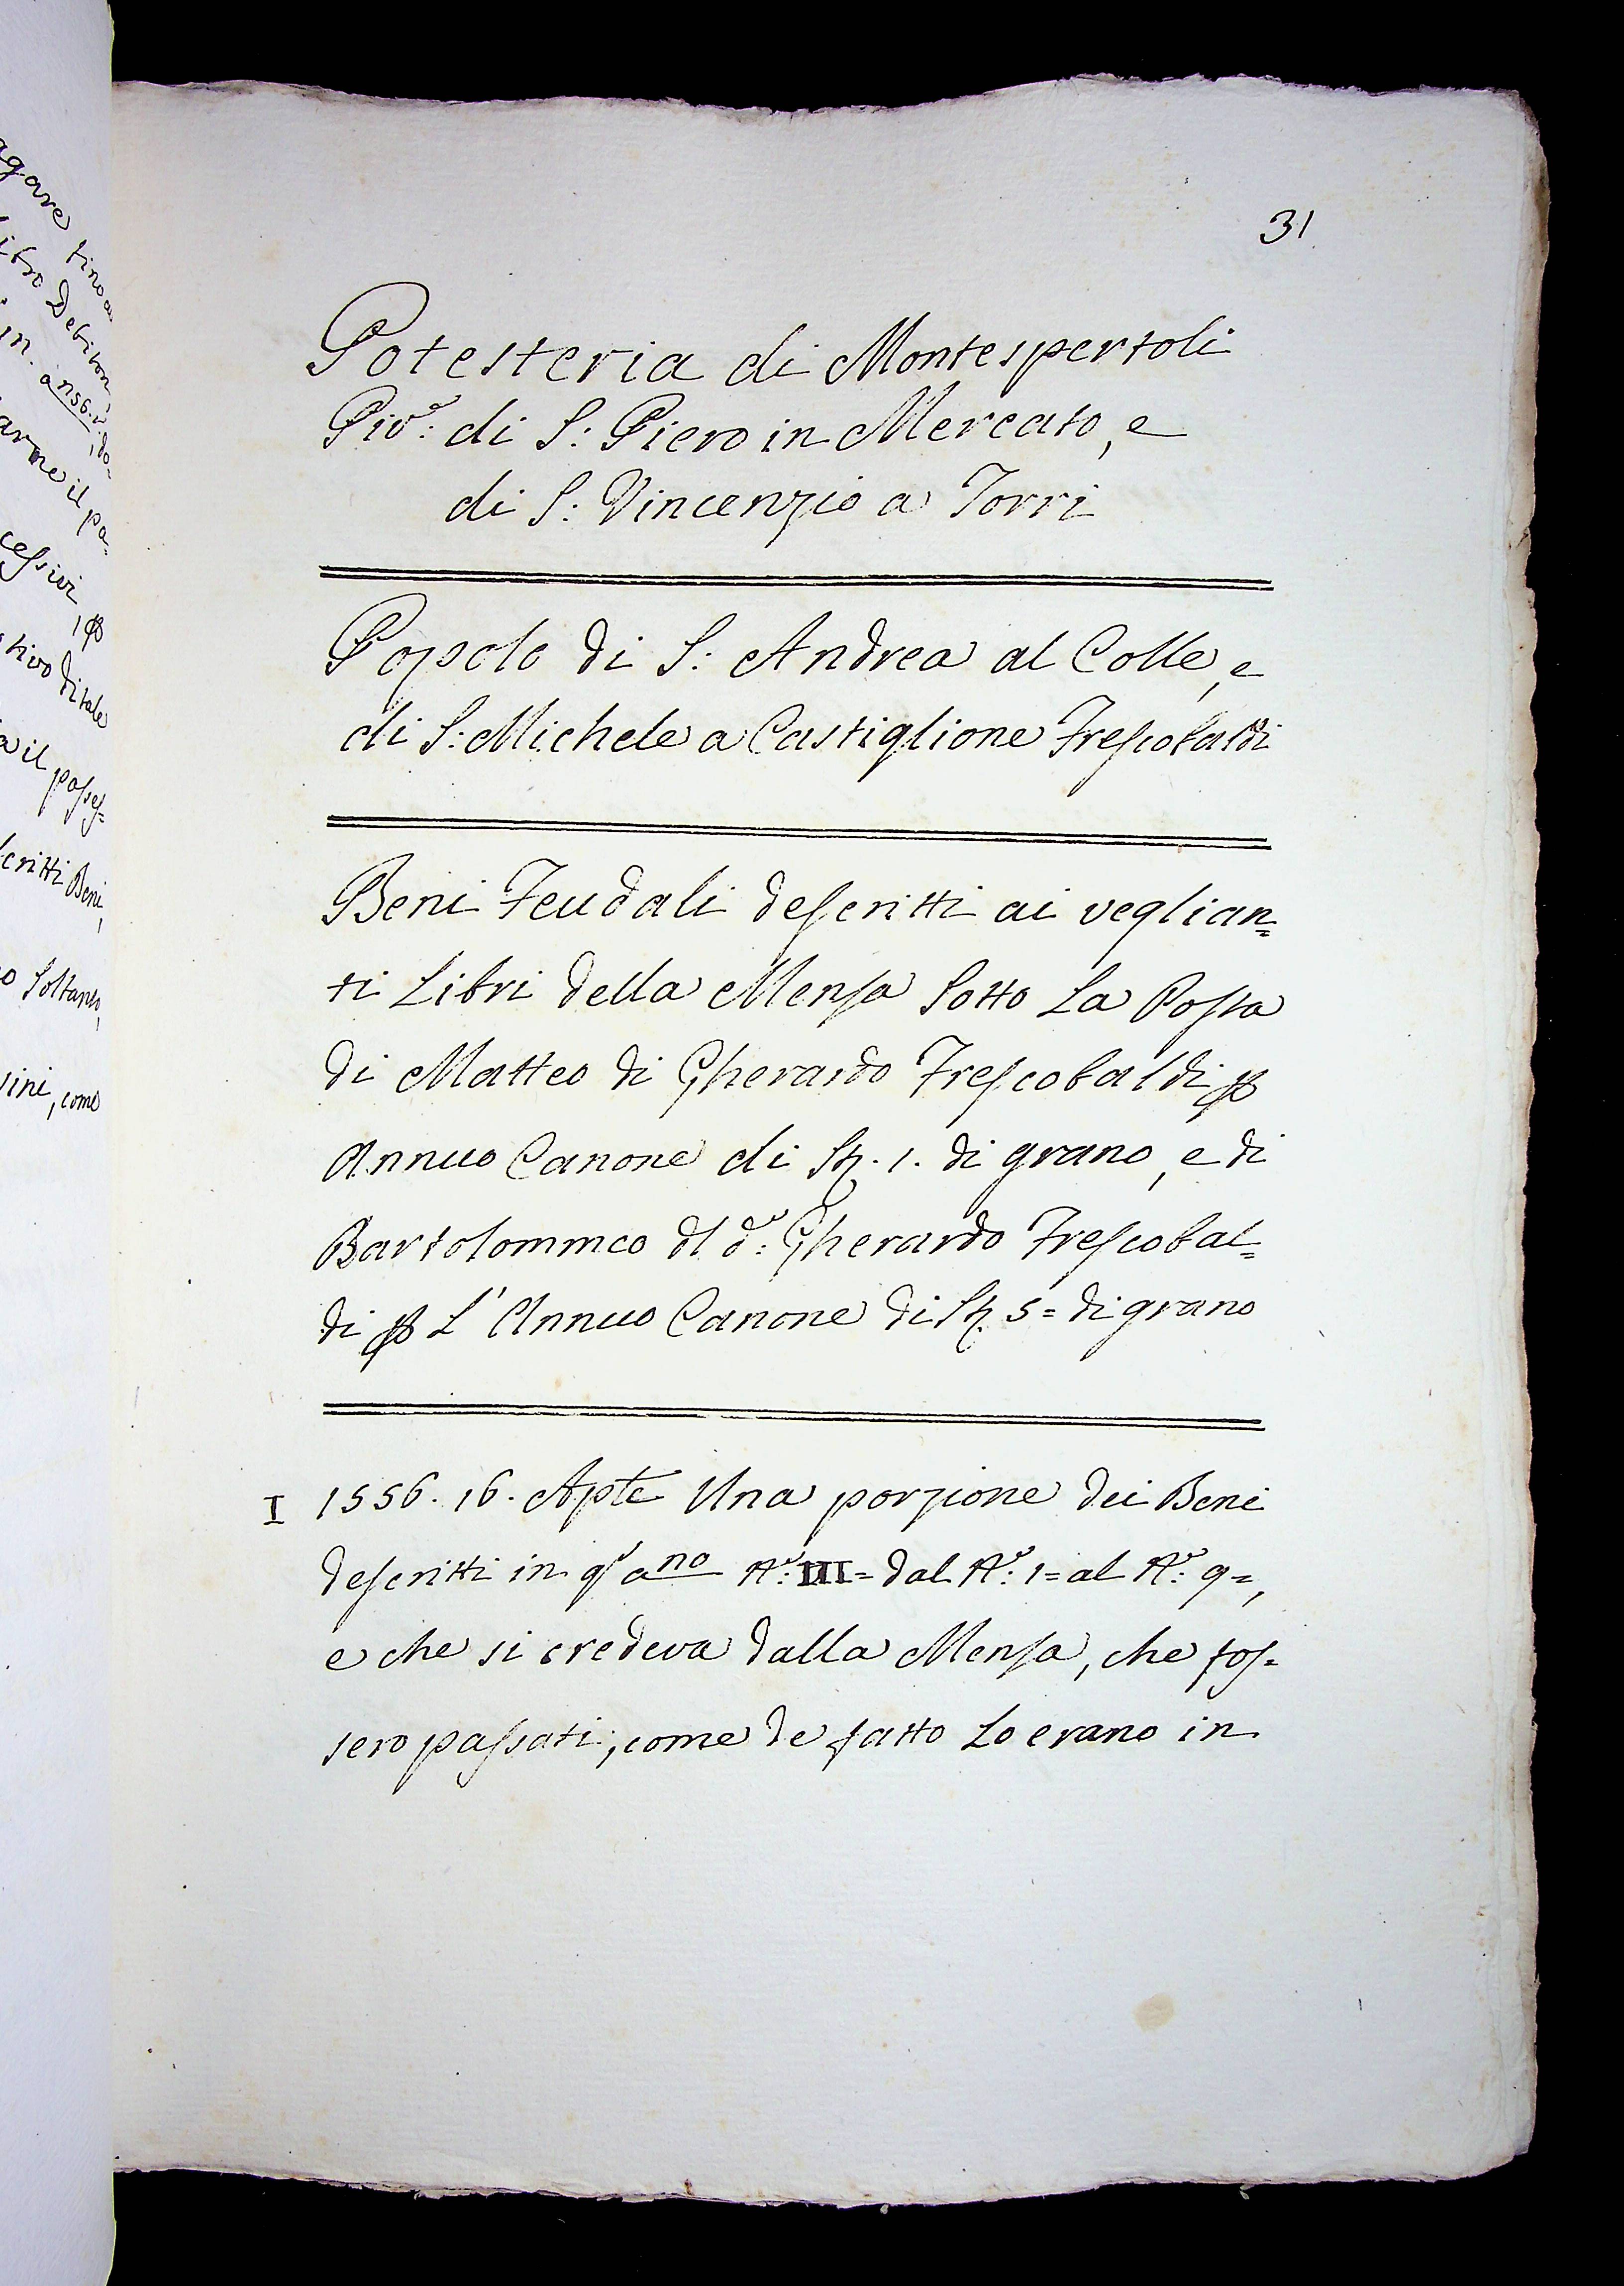 agare fino a
libro Debitori
in. a n 56. 2. do-
arne il pa=
cessivi, p
tivo di tale
a il posses=
scritti Beni,
o soltanto,
ini, come
31
Potesteria di Montespertoli
Piv.e: di S: Piero in Mercato, e
di S: Vincenzio a Torri
Popolo di S: Andrea al Colle, e
di S: Michele a Castiglione Frescobaldi
Beni Feudali descritti ai veglian=
ti Libri della Mensa sotto La Posta
di Matteo di Gherardo Frescobaldi p
Annuo Canone di St. 1. di grano, e di
Bartolommeo dl d.o: Gherardo Frescobal=
di p L'Annuo Canone di St. 5= di grano
I 1556. 16. Aple Una porzione dei Beni
descritti in q.o ano N.o: III= dal N.o: 1= al N.o: 9=,
e che si credeva dalla Mensa, che fos=
sero passati, come de fatto Lo erano in